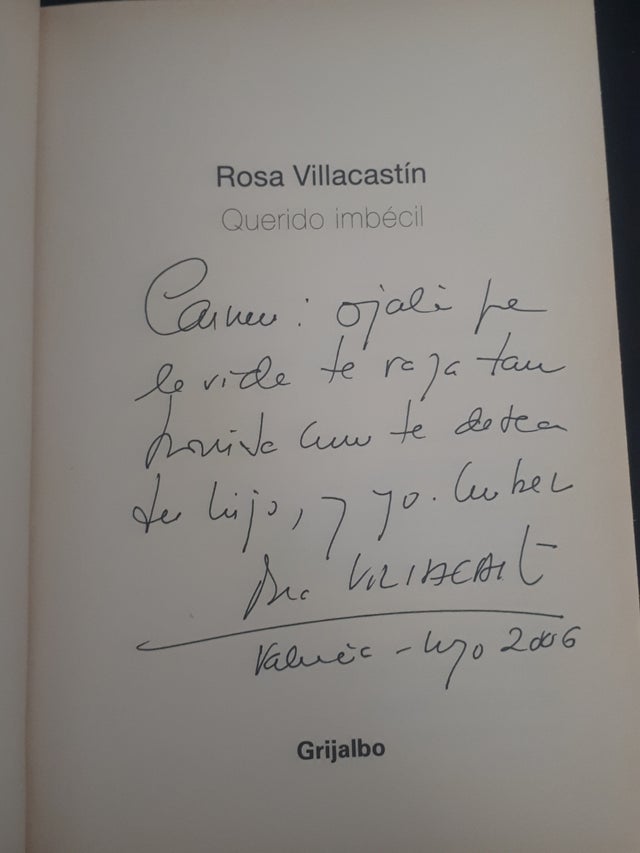 Rosa Villacastín
Querido imbécil
Carmen: ojalá que
la vida te vaya tan
bonita como te desea
tu hijo, y yo. Un beso
Rosa VILLACASTÍN
Valencia - Mayo 2006
Grijalbo